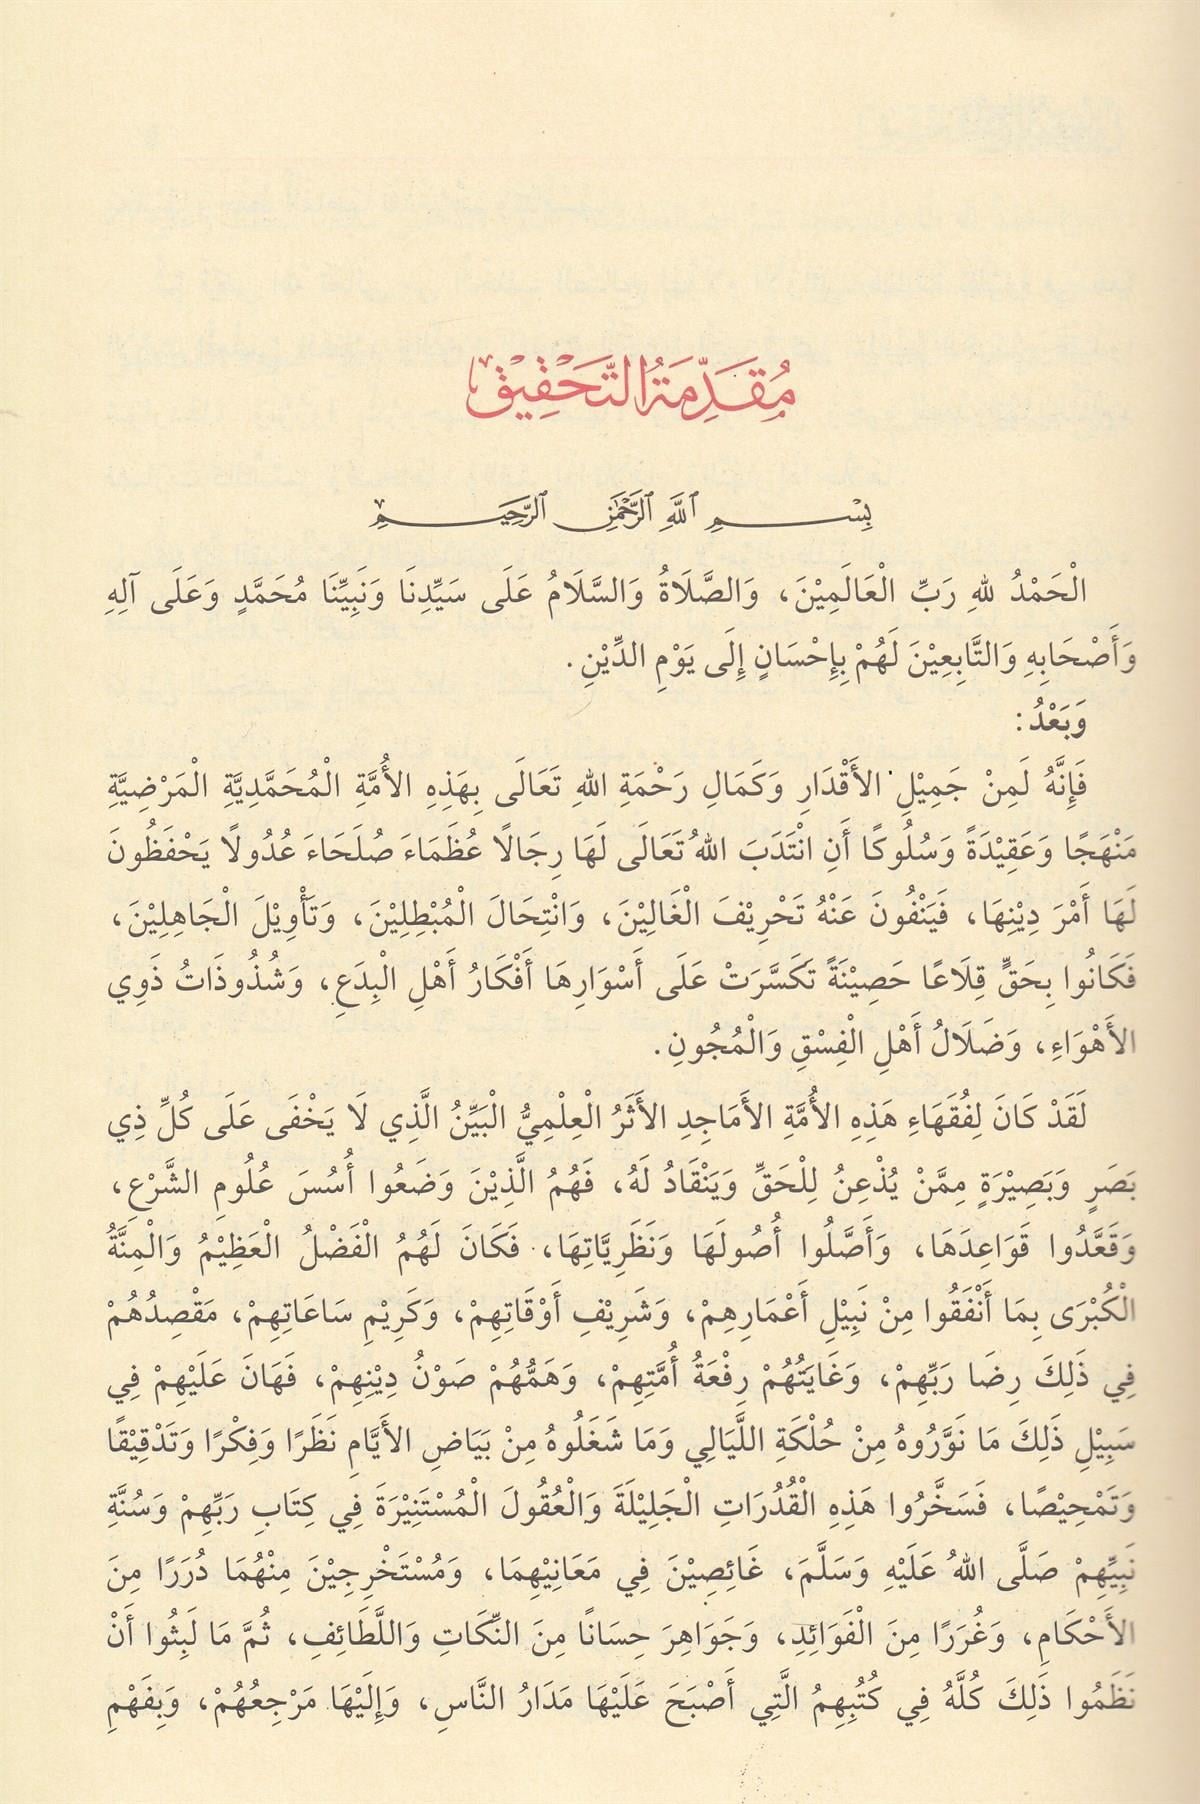 مُقَدِّمَةُ التَّحْقِيقِ
بِسْمِ اللَّهِ الرَّحْمَٰنِ الرَّحِيمِ
الْحَمْدُ للهِ رَبِّ الْعَالَمِيْنَ، وَالصَّلَاةُ وَالسَّلَامُ عَلَى سَيِّدِنَا وَنَبِيِّنَا مُحَمَّدٍ وَعَلَى آلِهِ
وَأَصْحَابِهِ وَالتَّابِعِيْنَ لَهُمْ بِإِحْسَانٍ إِلَى يَوْمِ الدِّيْنِ.
وَبَعْدُ:
فَإِنَّهُ لَمِنْ جَمِيْلِ الأَقْدَارِ وَكَمَالِ رَحْمَةِ اللهِ تَعَالَى بِهَذِهِ الأُمَّةِ الْمُحَمَّدِيَّةِ الْمَرْضِيَّةِ
مَنْهَجًا وَعَقِيْدَةً وَسُلُوكًا أَنِ انْتَدَبَ اللهُ تَعَالَى لَهَا رِجَالًا عُظَمَاءَ صُلَحَاءَ عُدُولًا يَحْفَظُونَ
لَهَا أَمْرَ دِيْنِهَا، فَيَنْفُونَ عَنْهُ تَحْرِيْفَ الْغَالِيْنَ، وَانْتِحَالَ الْمُبْطِلِيْنَ، وَتَأْوِيْلَ الْجَاهِلِيْنَ،
فَكَانُوا بِحَقٍّ قِلَاعًا حَصِيْنَةً تَكَسَّرَتْ عَلَى أَسْوَارِهَا أَفْكَارُ أَهْلِ الْبِدَعِ، وَشُذُوذَاتُ ذَوِي
الأَهْوَاءِ، وَضَلَالُ أَهْلِ الْفِسْقِ وَالْمُجُونِ.
لَقَدْ كَانَ لِفُقَهَاءِ هَذِهِ الأُمَّةِ الأَمَاجِدِ الأَثَرُ الْعِلْمِيُّ الْبَيِّنُ الَّذِي لَا يَخْفَى عَلَى كُلِّ ذِي
بَصَرٍ وَبَصِيْرَةٍ مِمَّنْ يُذْعِنُ لِلْحَقِّ وَيَنْقَادُ لَهُ، فَهُمُ الَّذِيْنَ وَضَعُوا أُسُسَ عُلُومِ الشَّرْعِ،
وَقَعَّدُوا قَوَاعِدَهَا، وَأَصَّلُوا أُصُولَهَا وَنَظَرِيَّاتِهَا، فَكَانَ لَهُمُ الْفَضْلُ الْعَظِيْمُ وَالْمِنَّةُ
الْكُبْرَى بِمَا أَنْفَقُوا مِنْ نَبِيْلِ أَعْمَارِهِمْ، وَشَرِيْفِ أَوْقَاتِهِمْ، وَكَرِيْمِ سَاعَاتِهِمْ، مَقْصِدُهُمْ
فِي ذَلِكَ رِضَا رَبِّهِمْ، وَغَايَتُهُمْ رِفْعَةُ أُمَّتِهِمْ، وَهَمُّهُمْ صَوْنُ دِيْنِهِمْ، فَهَانَ عَلَيْهِمْ فِي
سَبِيْلِ ذَلِكَ مَا نَوَّرُوهُ مِنْ حُلْكَةِ اللَّيَالِي وَمَا شَغَلُوهُ مِنْ بَيَاضِ الأَيَّامِ نَظَرًا وَفِكْرًا وَتَدْقِيْقًا
وَتَمْحِيْصًا، فَسَخَّرُوا هَذِهِ الْقُدُرَاتِ الْجَلِيْلَةَ وَالْعُقُولَ الْمُسْتَنِيْرَةَ فِي كِتَابِ رَبِّهِمْ وَسُنَّةِ
نَبِيِّهِمْ صَلَّى اللهُ عَلَيْهِ وَسَلَّمَ، غَائِصِيْنَ فِي مَعَانِيْهِمَا، وَمُسْتَخْرِجِيْنَ مِنْهُمَا دُرَرًا مِنَ
الأَحْكَامِ، وَغُرَرًا مِنَ الْفَوَائِدِ، وَجَوَاهِرَ حِسَانًا مِنَ النِّكَاتِ وَاللَّطَائِفِ، ثُمَّ مَا لَبِثُوا أَنْ
نَظَمُوا ذَلِكَ كُلَّهُ فِي كُتُبِهِمُ الَّتِي أَصْبَحَ عَلَيْهَا مَدَارُ النَّاسِ، وَإِلَيْهَا مَرْجِعُهُمْ، وَبِفَهْمِ